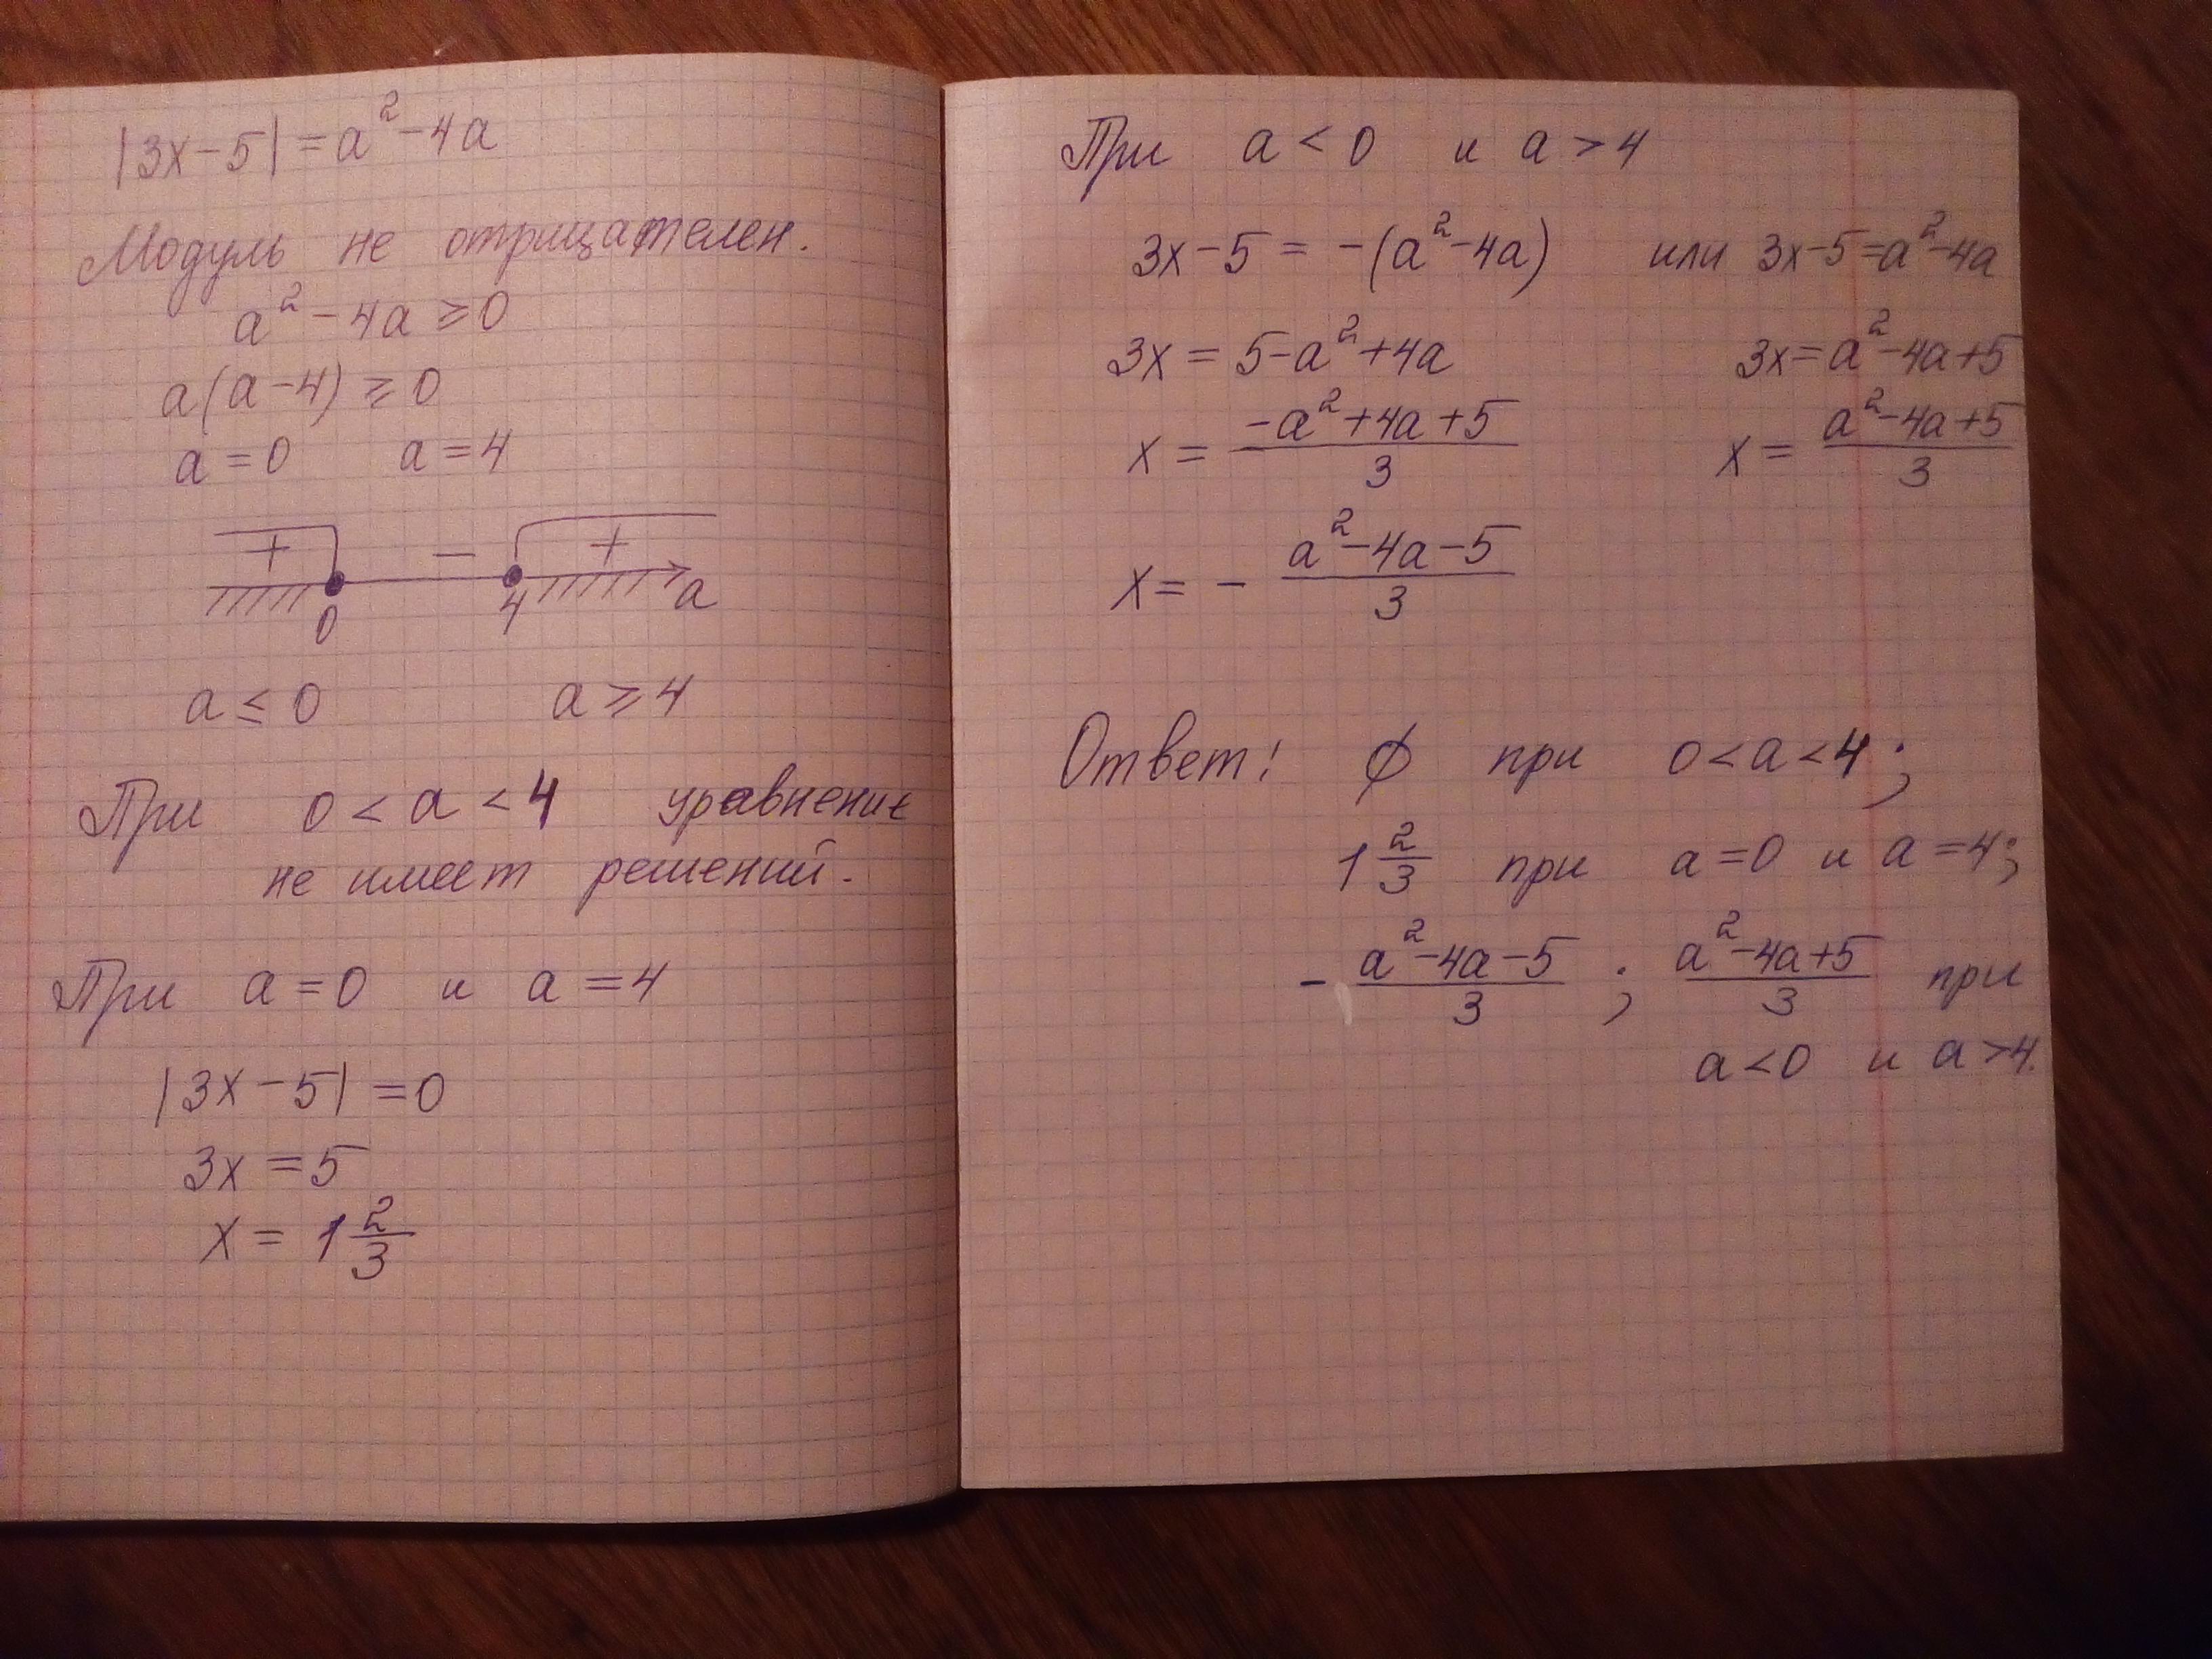 |3x-5| = a² - 4a
Модуль не отрицателен.
a² - 4a ≥ 0
a(a-4) ≥ 0
a = 0 a = 4
+ − +
0 4 a
a ≤ 0 a ≥ 4
При 0 < a < 4 уравнение
не имеет решений.
При a = 0 и a = 4
|3x-5| = 0
3x = 5
x = 1 2/3
При a < 0 и a > 4
3x-5 = -(a²-4a) или 3x-5=a²-4a
3x = 5-a²+4a 3x=a²-4a+5
x = (-a²+4a+5)/3 x = (a²-4a+5)/3
x = - (a²-4a-5)/3
Ответ: ∅ при 0<a<4;
1 2/3 при a=0 и a=4;
- (a²-4a-5)/3 ; (a²-4a+5)/3 при
a<0 и a>4.